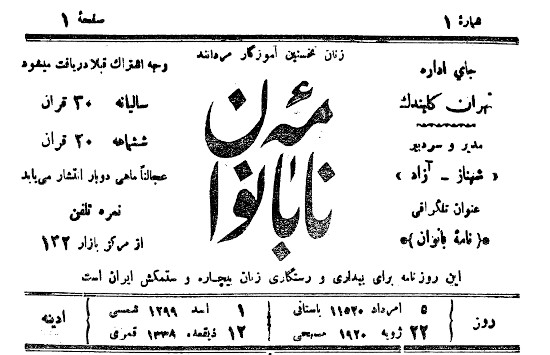 شمارهٔ ۱
صفحهٔ ۱
زنان نخستین آموزگار مردانند
نامهٔ بانوان
جای اداره
تهران گلبندك
مدیر و سردبیر
« شهناز ـ آزاد »
عنوان تلگرافی
*{ نامهٔ بانوان }*
وجه اشتراك قبلا دریافت میشود
سالیانه ۳۰ قران
ششماهه ۲۰ قران
عجالتاً ماهی دوبار انتشار می‌یابد
نمره تلفن
از مرکز بازار ۱۳۲
این روزنامه برای بیداری و رستگاری زنان بیچاره و ستمکش ایران است
روز
۵ امرداد ۱۱۵۲۰ باستانی
۲۲ ژویه ۱۹۲۰ مسیحی
۱ اسد ۱۲۹۹ شمسی
۱۲ ذیقعده ۱۳۳۸ قمری
ادینه